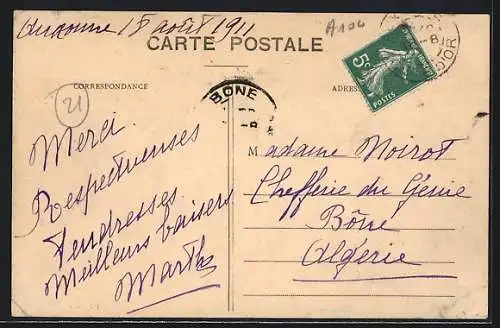 Auxonne 18 août 1911
A104
CARTE POSTALE
CORRESPONDANCE
ADRES
21
5c
POSTES
BONE
D'OR
Merci
Respectueuses
Tendresses
Meilleurs baisers
Marthe
Madame Noirot
Chefferie du Génie
Bône
Algérie